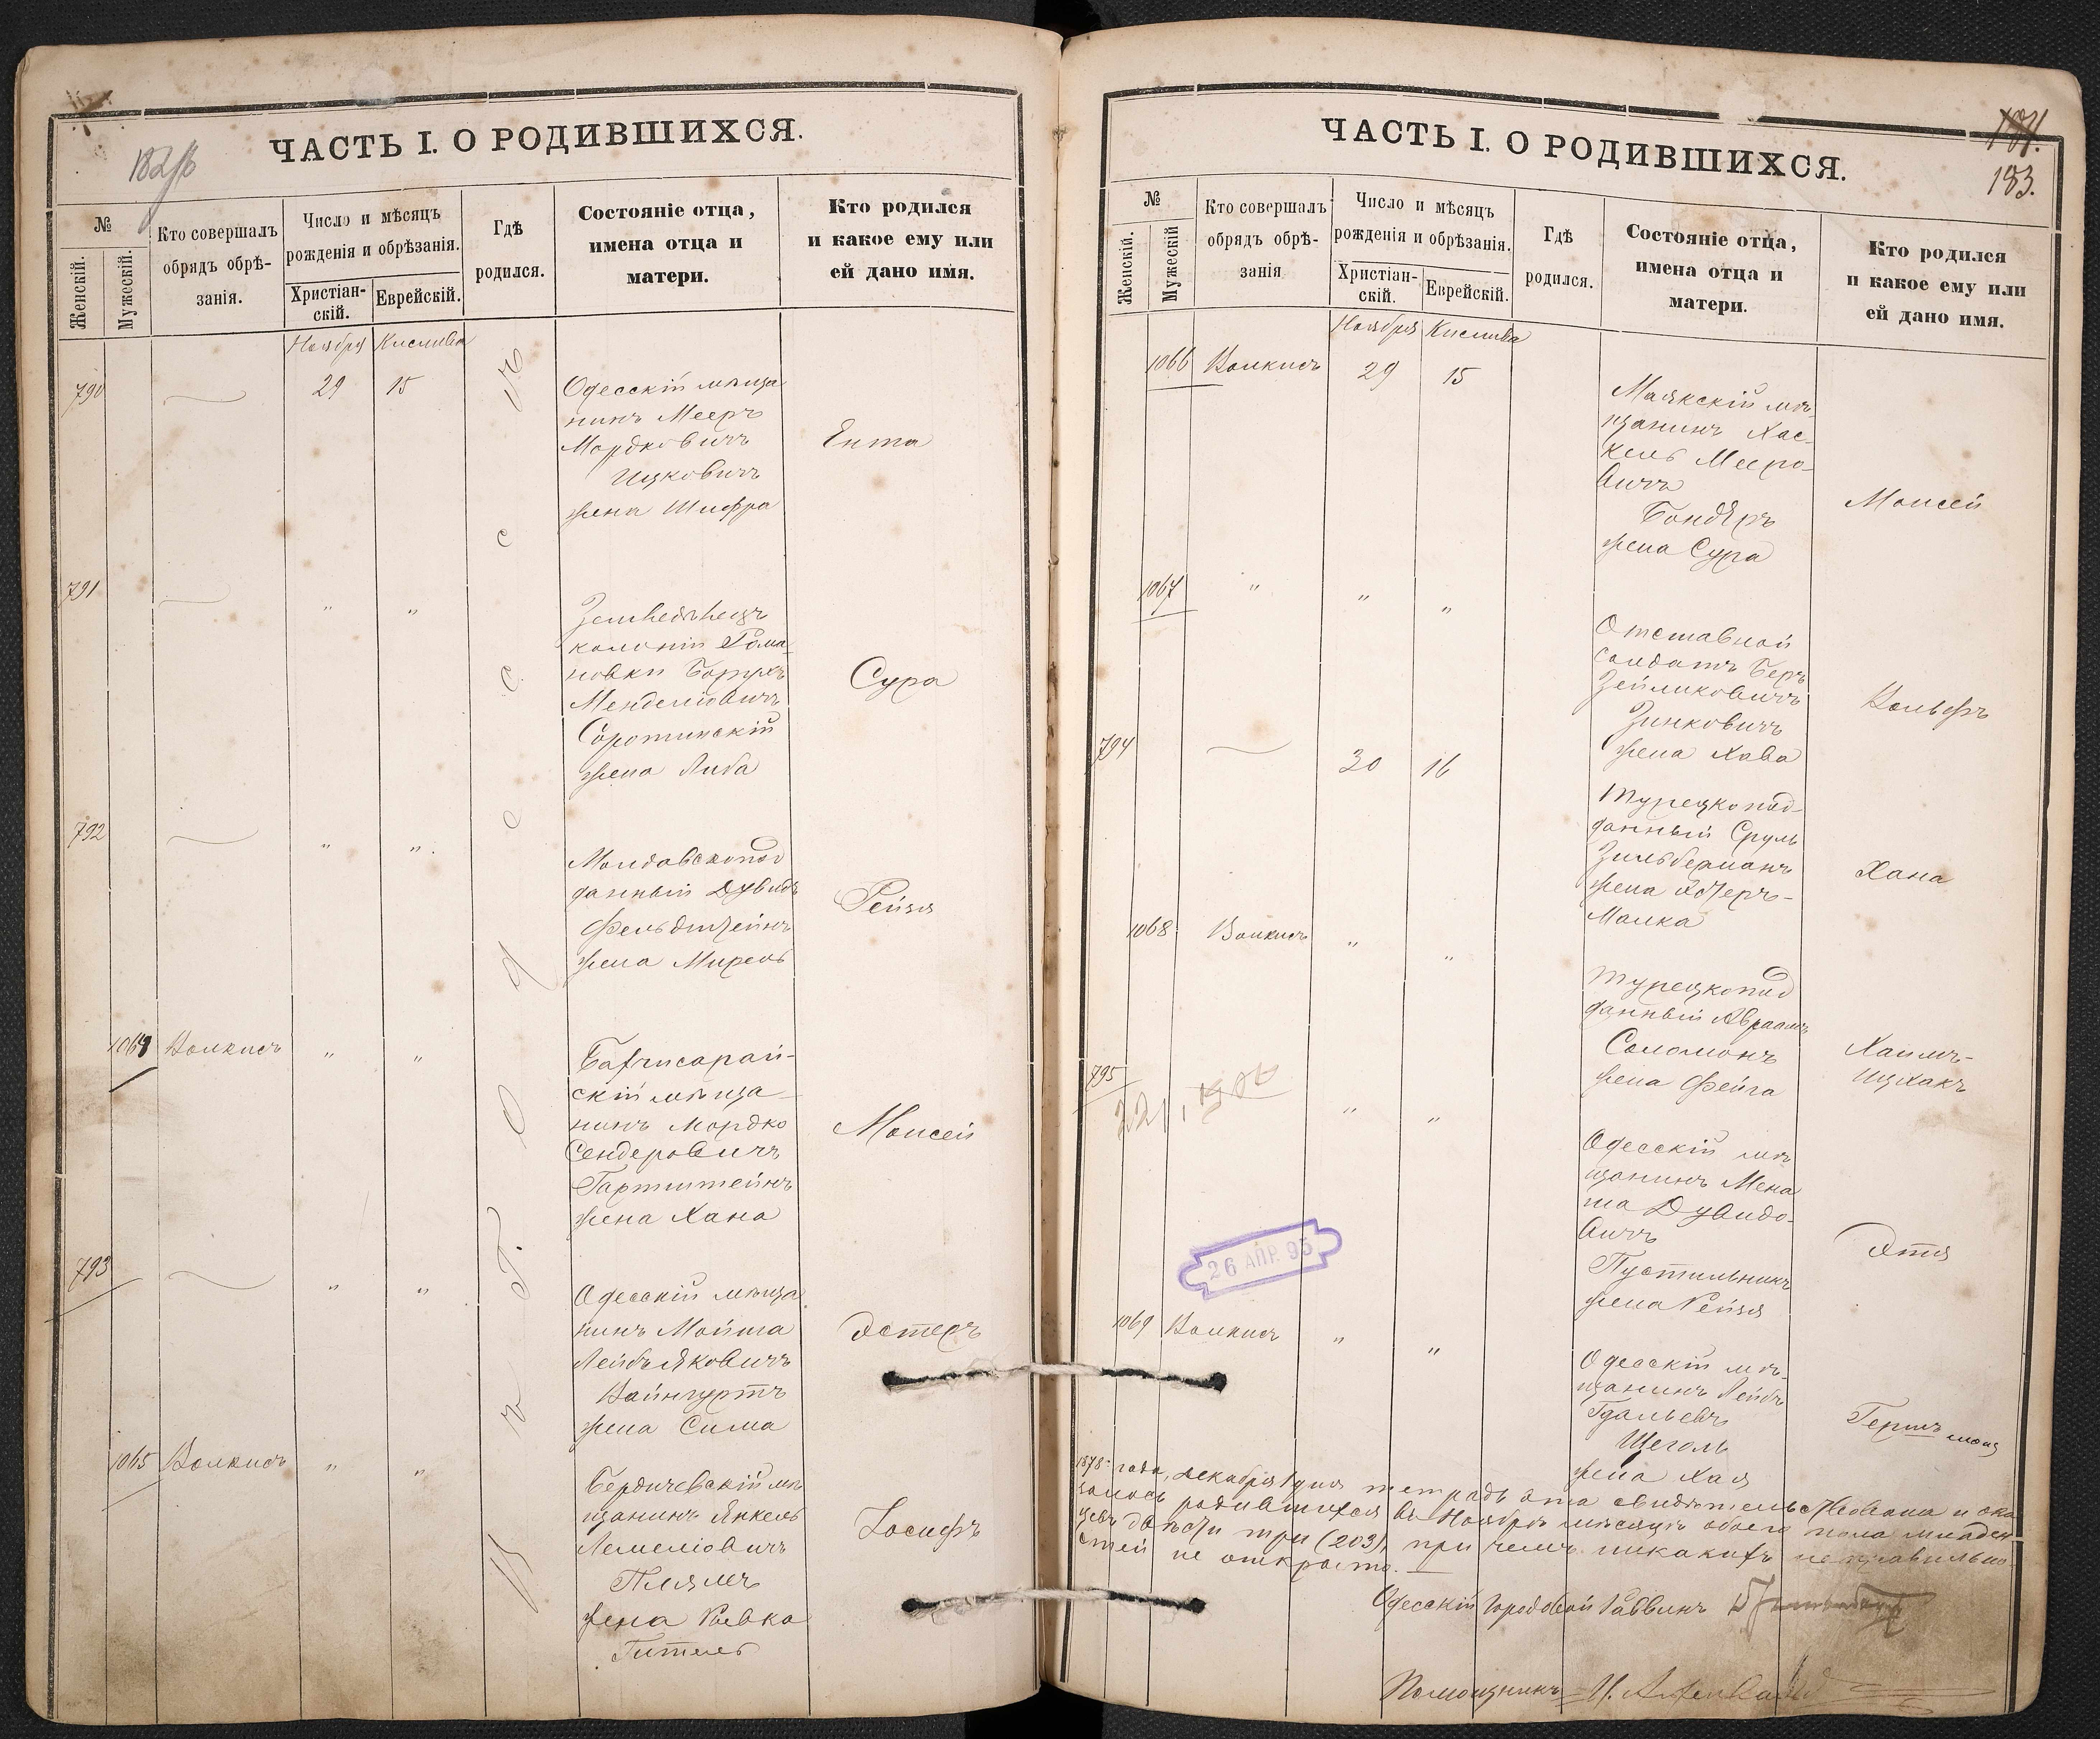 182 об
ЧАСТЬ I. О РОДИВШИХСЯ.
№
Женскій.
Мужескій.
Кто совершалъ
обрядъ обрѣ-
занія.
Число и мѣсяцъ
рожденія и обрѣзанія.
Христіан-
скій.
Еврейскій.
Гдѣ
родился.
Состояніе отца,
имена отца и
матери.
Кто родился
и какое ему или
ей дано имя.
Ноября Кислива
Въ г. Одессѣ
790 29 15
Одесскій мѣща
нинъ Мееръ
Мордковичъ
Ицковичъ
жена Шифра
Ента
791 " "
Земледѣлецъ
колоніи Рома-
новки Борухъ
Менделіовичъ
Соротинскій
жена Либа
Сура
792 " "
Молдавскопод
данный Дувидъ
Фельдштейнъ
жена Мирель
Рейзя
1064 Волкисъ " "
Бахчисарай-
скій мѣща-
нинъ Мордко
Сендеровичъ
Гартштейнъ
жена Хана
Моисей
793 " "
Одесскій мѣща
нинъ Мойша
Лейбъ Яковичъ
Вайнгуртъ
жена Сима
Эстеръ
1065 Волкисъ " "
Бердичевскій мѣ
щанинъ Янкель
Лемеліовичъ
Плямъ
жена Ривка
Гитель
Іосифъ
181.
183.
ЧАСТЬ I. О РОДИВШИХСЯ.
№
Женскій.
Мужескій
Кто совершалъ
обрядъ обрѣ-
занія
Число и мѣсяцъ
рожденія и обрѣзанія.
Христіан-
скій.
Еврейскій.
Гдѣ
родился.
Состояніе отца,
имена отца и
матери.
Кто родился
и какое ему или
ей дано имя.
Ноября Кислива
1066 Волкисъ 29 15
Маякскій мѣ-
щанинъ Хас-
кель Мееро-
вичъ
Бондаръ
жена Сура
Моисей
1067 " " "
Отставной
солдатъ Беръ
Зейликовичъ
Зинковичъ
жена Хава
Вольфъ
794 30 16
Турецкопод-
данный Сруль
Зильберманъ
жена Эстеръ-
Малка
Хана
1068 Волкисъ " "
Турецкопод
данный Авраамъ
Соломонъ
жена Фейга
Хаимъ-
Ицхакъ
795 " "
Одесскій мѣ
щанинъ Мена
ша Дувидо-
вичъ
Пустильникъ
жена Рейзя
Этя
26 АПР. 95
1069 Волкисъ " "
Одесскій мѣ-
щанинъ Лейбъ
Гдальевъ
Щеголь
жена Хая
Гершъ
1878 года, декабря 1 дня тетрадь эта свидѣтельствована и ока
залось родившихся въ Ноябрѣ мѣсяцѣ обоего пола младен
цевъ двѣсти три (203), при чемъ никакихъ неправильно
стей не открыто.
Одесскій Городовой Раввинъ
Помощникъ